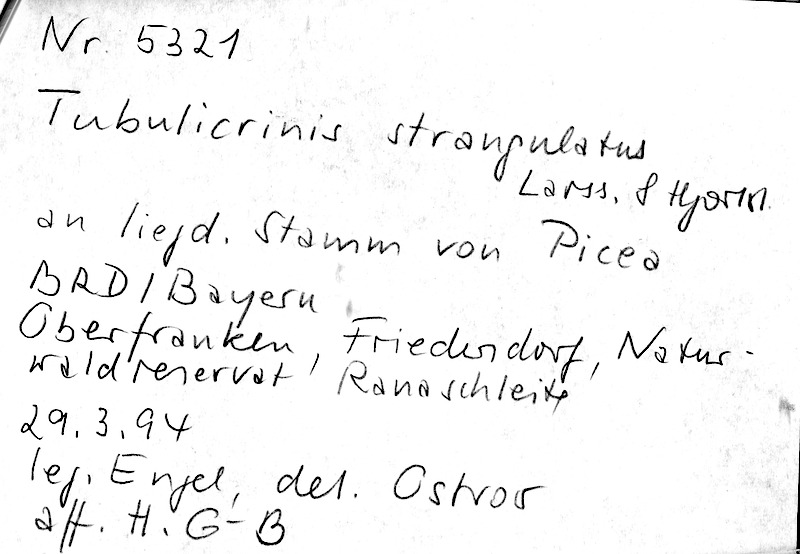 Nr. 5321
Tubulicrinis strangulatus
Larss. & Hjortst.
an liegd. Stamm von Picea
BRD/Bayern
Oberfranken, Friedersdorf, Natur-
waldreservat, Ranaschleite
29.3.94
leg. Engel, det. Ostrow
aff. H. G-B